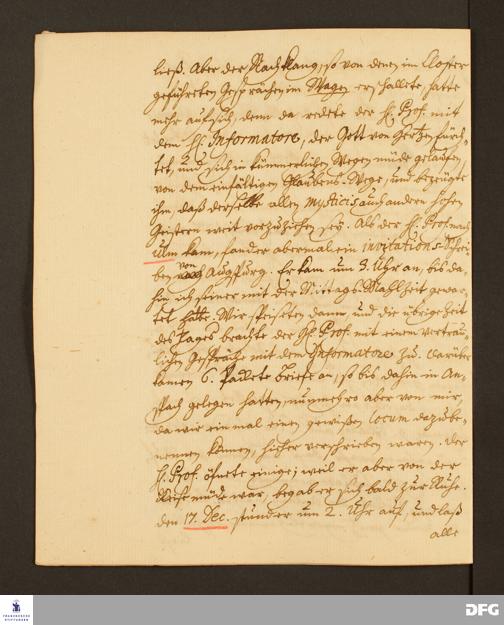 ließ. Aber der Nachklang, so von denen im Closter
geführeten Gesprächen im Wagen erschallete, hatte
mehr auf sich, denn da redete der H. Prof. mit
dem H. Informatore, der Gott von Hertzen fürch-
tet, und sich in kümmerlichen Wegen müde gelaufen,
von dem einfältigen Glaubens-Wege, und bezeugte
ihm, daß derselbe allen mysticis auch andern hohen
Geistern weit vorzuziehen sey. Als der H. Prof. nach
Ulm kam, fand er abermal ein invitations-Schrei-
ben von Augspurg. Er kam um 3. Uhr an, bis da-
hin ich seiner mit der Mittags-Mahlzeit gewar-
tet hatte. Wir speiseten dann und die übrige Zeit
des Tages brachte der H. Prof. mit einem vertrau-
lichen Gespräche mit dem Informatore zu. Darüber
kamen 6. Paillete Briefe an, so bis dahin in An-
spach gelegen hatten, nunmehro aber von mir,
da wir einmal einen gewißen locum dazu be-
nennen können, hieher verschrieben waren. Der
H. Prof. öfnete einige; weil er aber von der
Reise müde war, begab er sich bald zur Ruhe.
den 17. Dec. stund er um 2. Uhr auf, und laß
alle
FRANCKESCHE
STIFTUNGEN
DFG